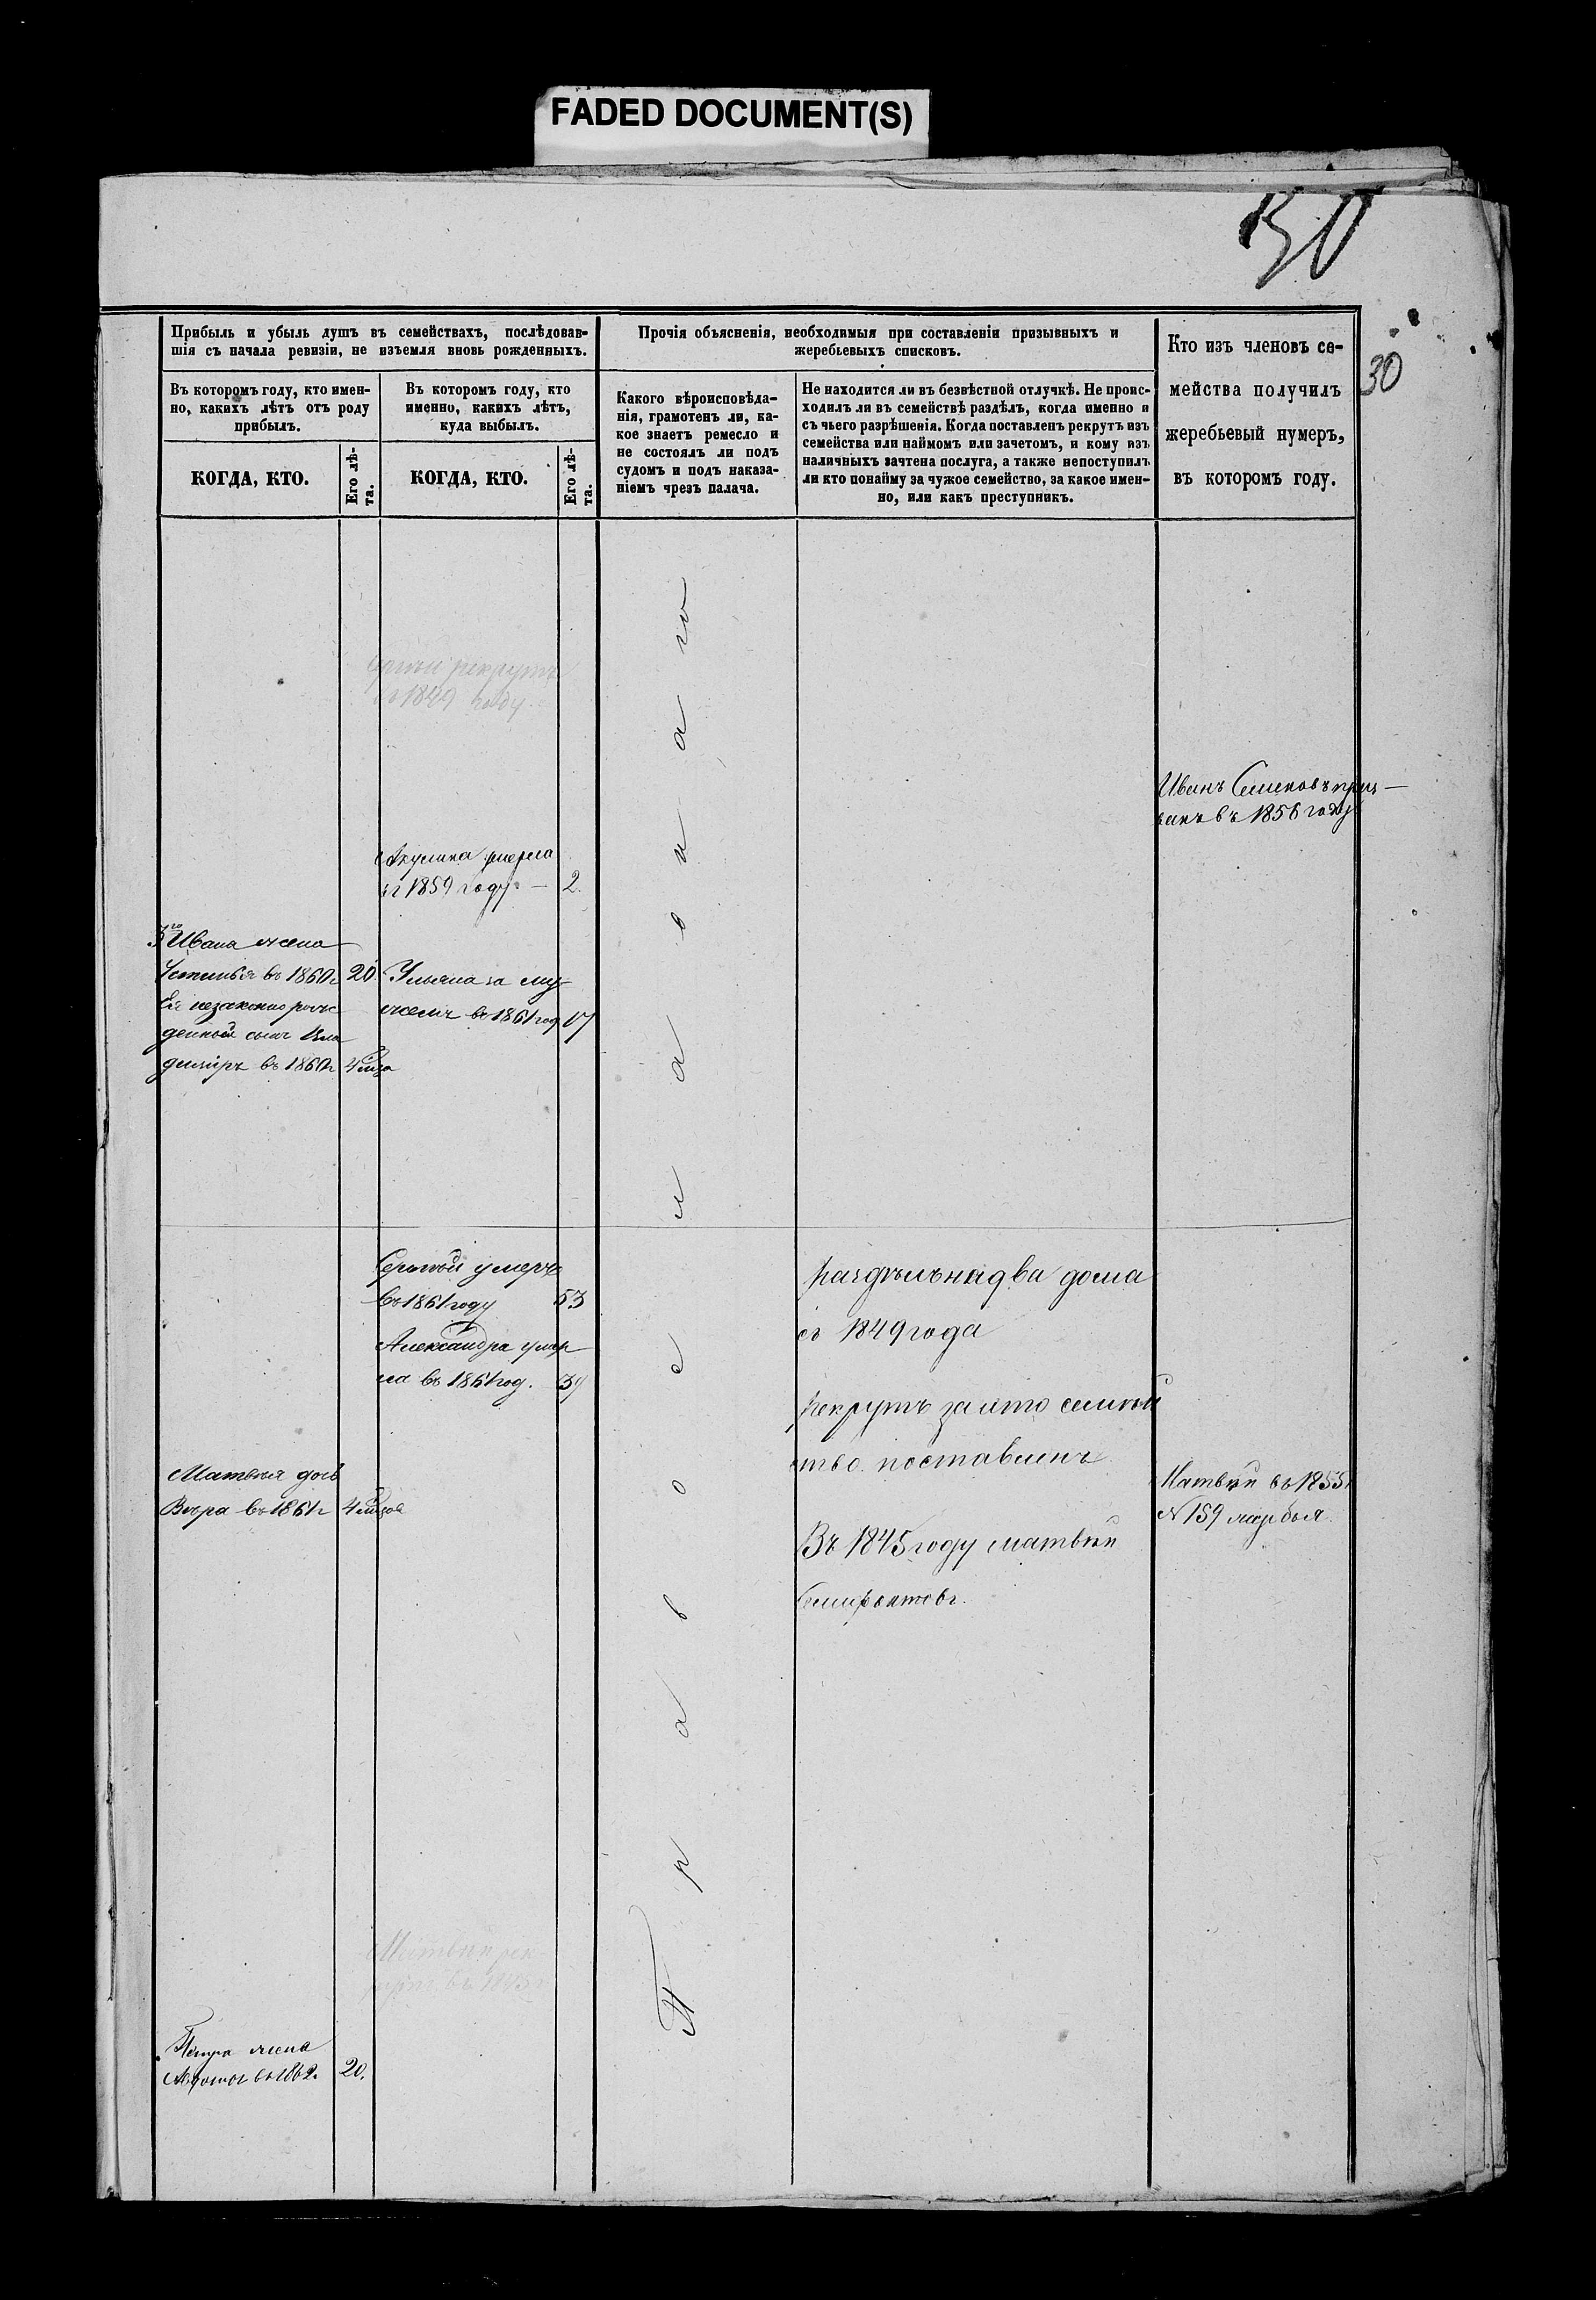 FADED DOCUMENT(S)
30
Прибыль и убыль душъ въ семействахъ, послѣдовав-
шія съ начала ревизіи, не изъемля вновь рожденныхъ.
Въ которомъ году, кто имен-
но, какихъ лѣтъ отъ роду
прибылъ.
КОГДА, КТО.
Его лѣ-
та.
Въ которомъ году, кто
именно, какихъ лѣтъ,
куда выбылъ.
КОГДА, КТО.
Его лѣ-
та.
Прочія объясненія, необходимыя при составленіи призывныхъ и
жеребьевыхъ списковъ.
Какого вѣроисповѣда-
нія, грамотенъ ли, ка-
кое знаетъ ремесло и
не состоялъ ли подъ
судомъ и подъ наказа-
ніемъ чрезъ палача.
Не находится ли въ безвѣстной отлучкѣ. Не проис-
ходилъ ли въ семействѣ раздѣлъ, когда именно и
съ чьего разрѣшенія. Когда поставленъ рекрутъ изъ
семейства или наймомъ или зачетомъ, и кому изъ
наличныхъ зачтена послуга, а также непоступилъ
ли кто понайму за чужое семейство, за какое имен-
но, или какъ преступникъ.
Кто изъ членовъ се-
мейства получилъ
жеребьевый нумеръ,
въ которомъ году.
рекрутъ
1849 году
Иванъ
въ 1858 году
Акулина умерла
въ 1859 году — 2.
3го Ивана жена
Устинья въ 1860г 20
Ея незаконно рож
денной сынъ Вла
димиръ въ 1860г 4
Ульяна за му
жемъ въ 1861 год 17
Православнаго
Сергѣй умеръ
въ 1861 году 53
Александра умер
ла въ 1861 год. 34
раздѣлъ на два дома
съ 1849 года
рекрутъ за ито семей
ство поставленъ
Въ 1845 году матвѣй
Матвѣя дочь
Вѣра въ 1861г 4
Матвѣй въ 1855г
№ 159
Матвѣй рек
Петра жена
въ 1862. 20.